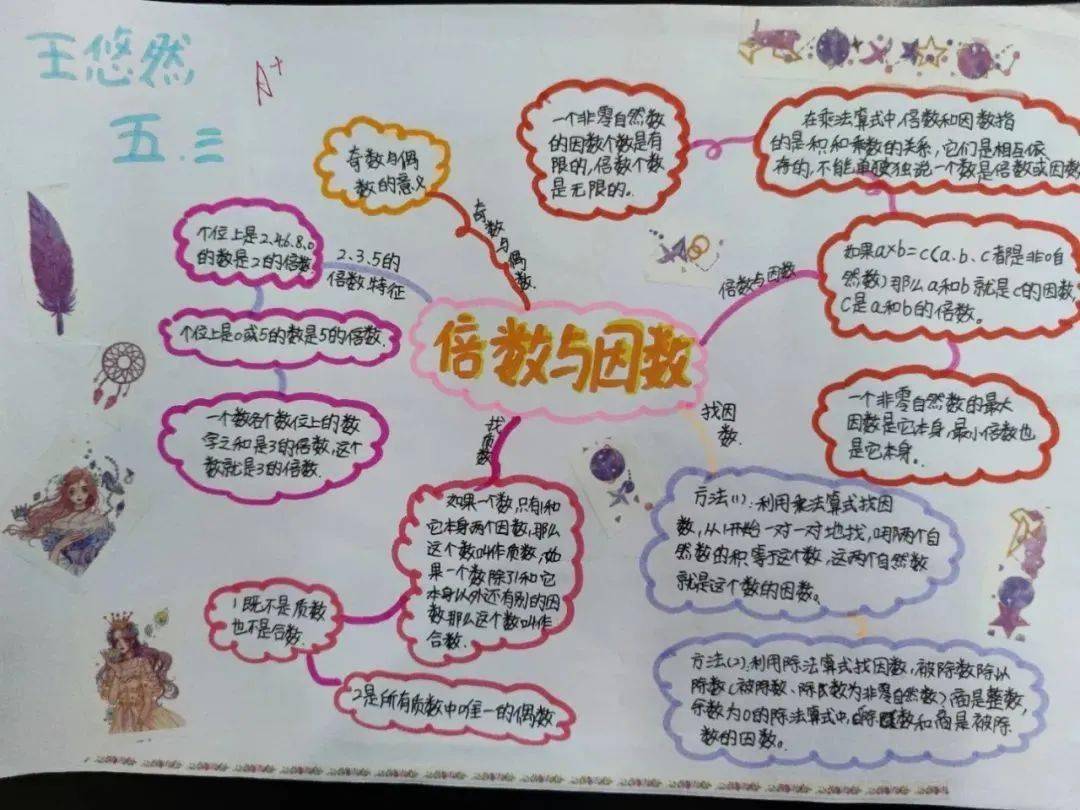 王悠然
五.三
A+
倍数与因数
奇数与偶数.
奇数与偶
数的意义
2.3.5的
倍数.特征
个位上是2.4.6.8.0
的数是2的倍数
个位上是0或5的数是5的倍数.
一个数各个数位上的数
字之和是3的倍数,这个
数就是3的倍数.
找质数
如果一个数,只有1和
它本身两个因数,那么
这个数叫作质数,如
果一个数除了1和它
本身以外还有别的因
数,那么这个数叫作
合数.
1既不是质数
也不是合数.
2是所有质数中唯一的偶数
倍数与因数
如果a×b=c(a.b、c都是非0自
然数)那么a和b就是c的因数,
C是a和b的倍数。
在乘法算式中,倍数和因数指
的是积和乘数的关系,它们是相互依
存的,不能单独说一个数是倍数或因数
一个非零自然数
的因数个数是有
限的,倍数个数
是无限的。
一个非零自然数的最大
因数是它本身,最小倍数也
是它本身。
找因数.
方法(1):利用乘法算式找因
数,从1开始一对一对地找,哪两个自
然数的积等于这个数,这两个自然数
就是这个数的因数。
方法(2):利用除法算式找因数,被除数除以
除数(被除数、除数为非零自然数)商是整数,
余数为0的除法算式中,除数和商是被除
数的因数。